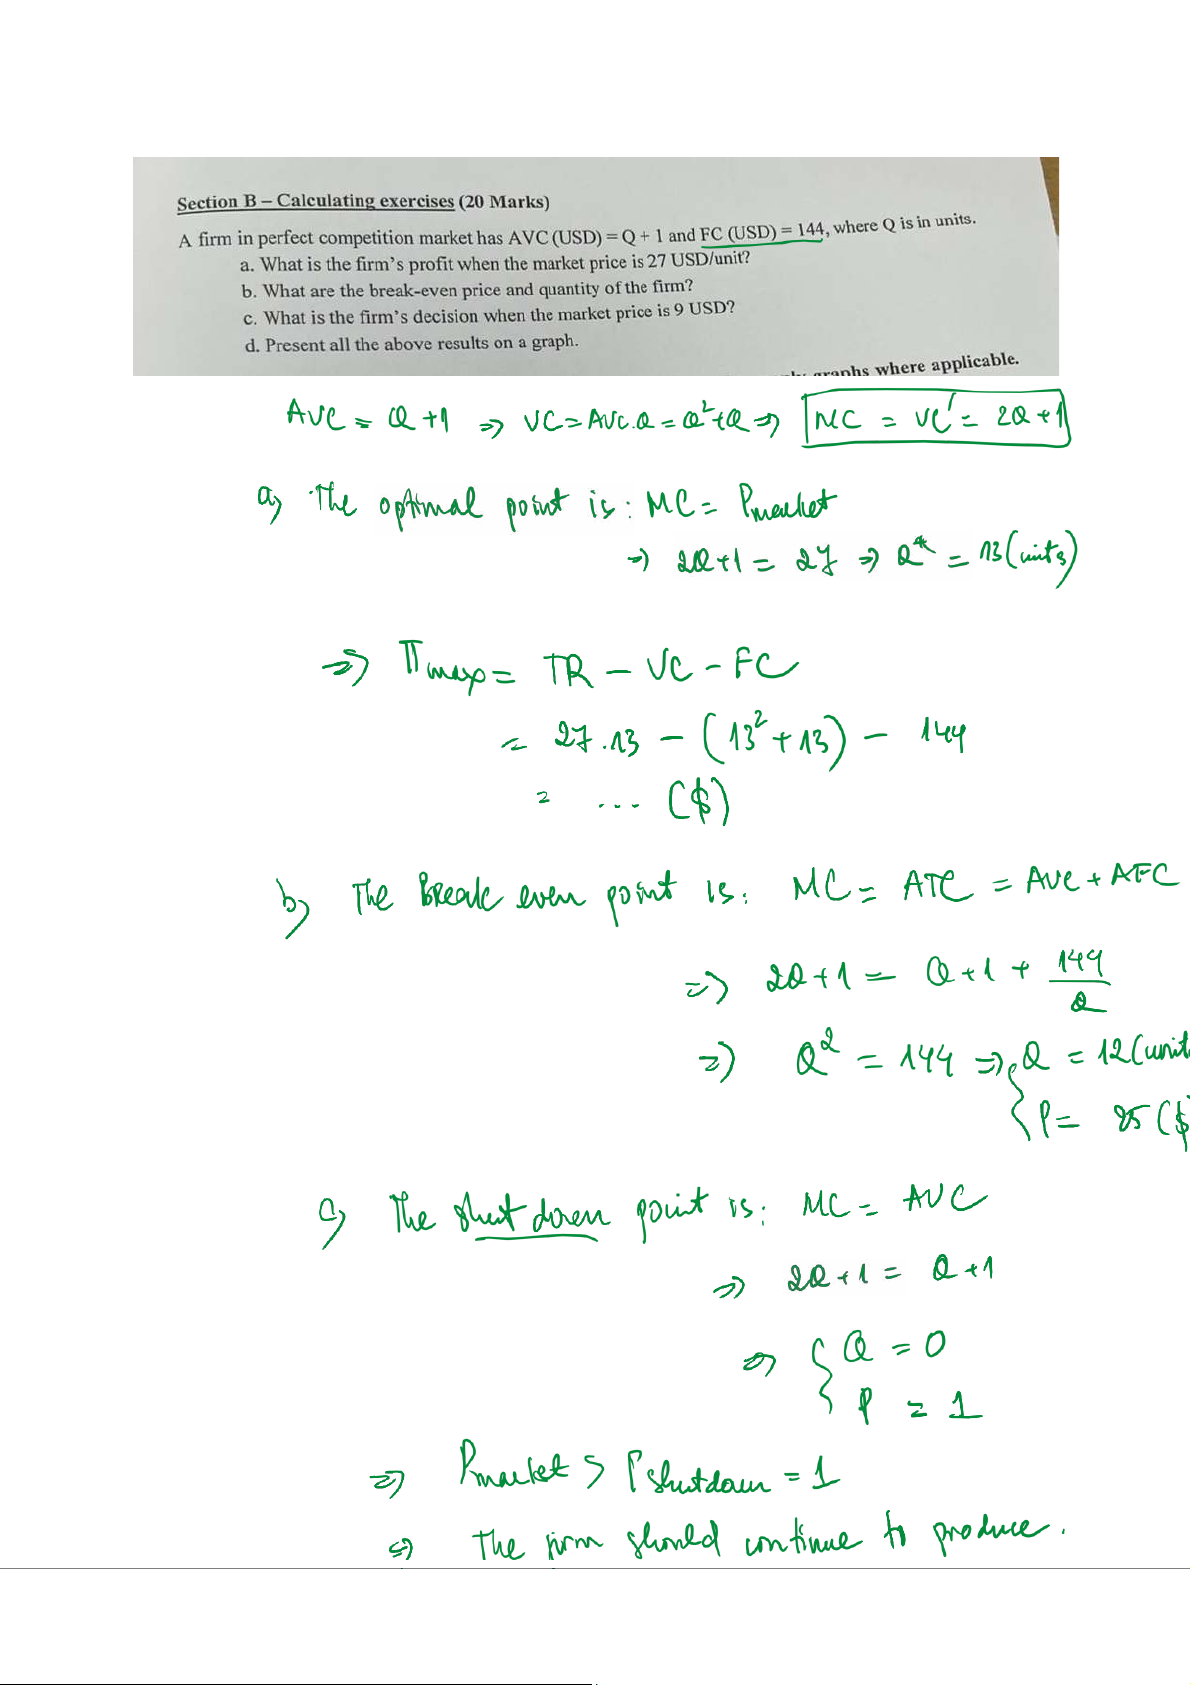 Section B – Calculating exercises (20 Marks)
A firm in perfect competition market has AVC (USD) = Q + 1 and FC (USD) = 144, where Q is in units.
a. What is the firm's profit when the market price is 27 USD/unit?
b. What are the break-even price and quantity of the firm?
c. What is the firm's decision when the market price is 9 USD?
d. Present all the above results on a graph.
graphs where applicable.
AVC = Q + 1 => VC = AVC.Q = Q² + Q => MC = VC' = 2Q + 1
a) The optimal point is: MC = Pmarket
=> 2Q + 1 = 27 => Q* = 13 (units)
=> πmax = TR – VC – FC
= 27.13 – (13² + 13) – 144
= ... ($)
b) The Break even point is: MC = ATC = AVC + AFC
=> 2Q + 1 = Q + 1 + 144/Q
=> Q² = 144 => { Q = 12 (unit
P = 25 ($
c) The shut down point is: MC = AVC
=> 2Q + 1 = Q + 1
=> { Q = 0
P = 1
=> Pmarket > Pshutdown = 1
=> The firm should continue to produce.